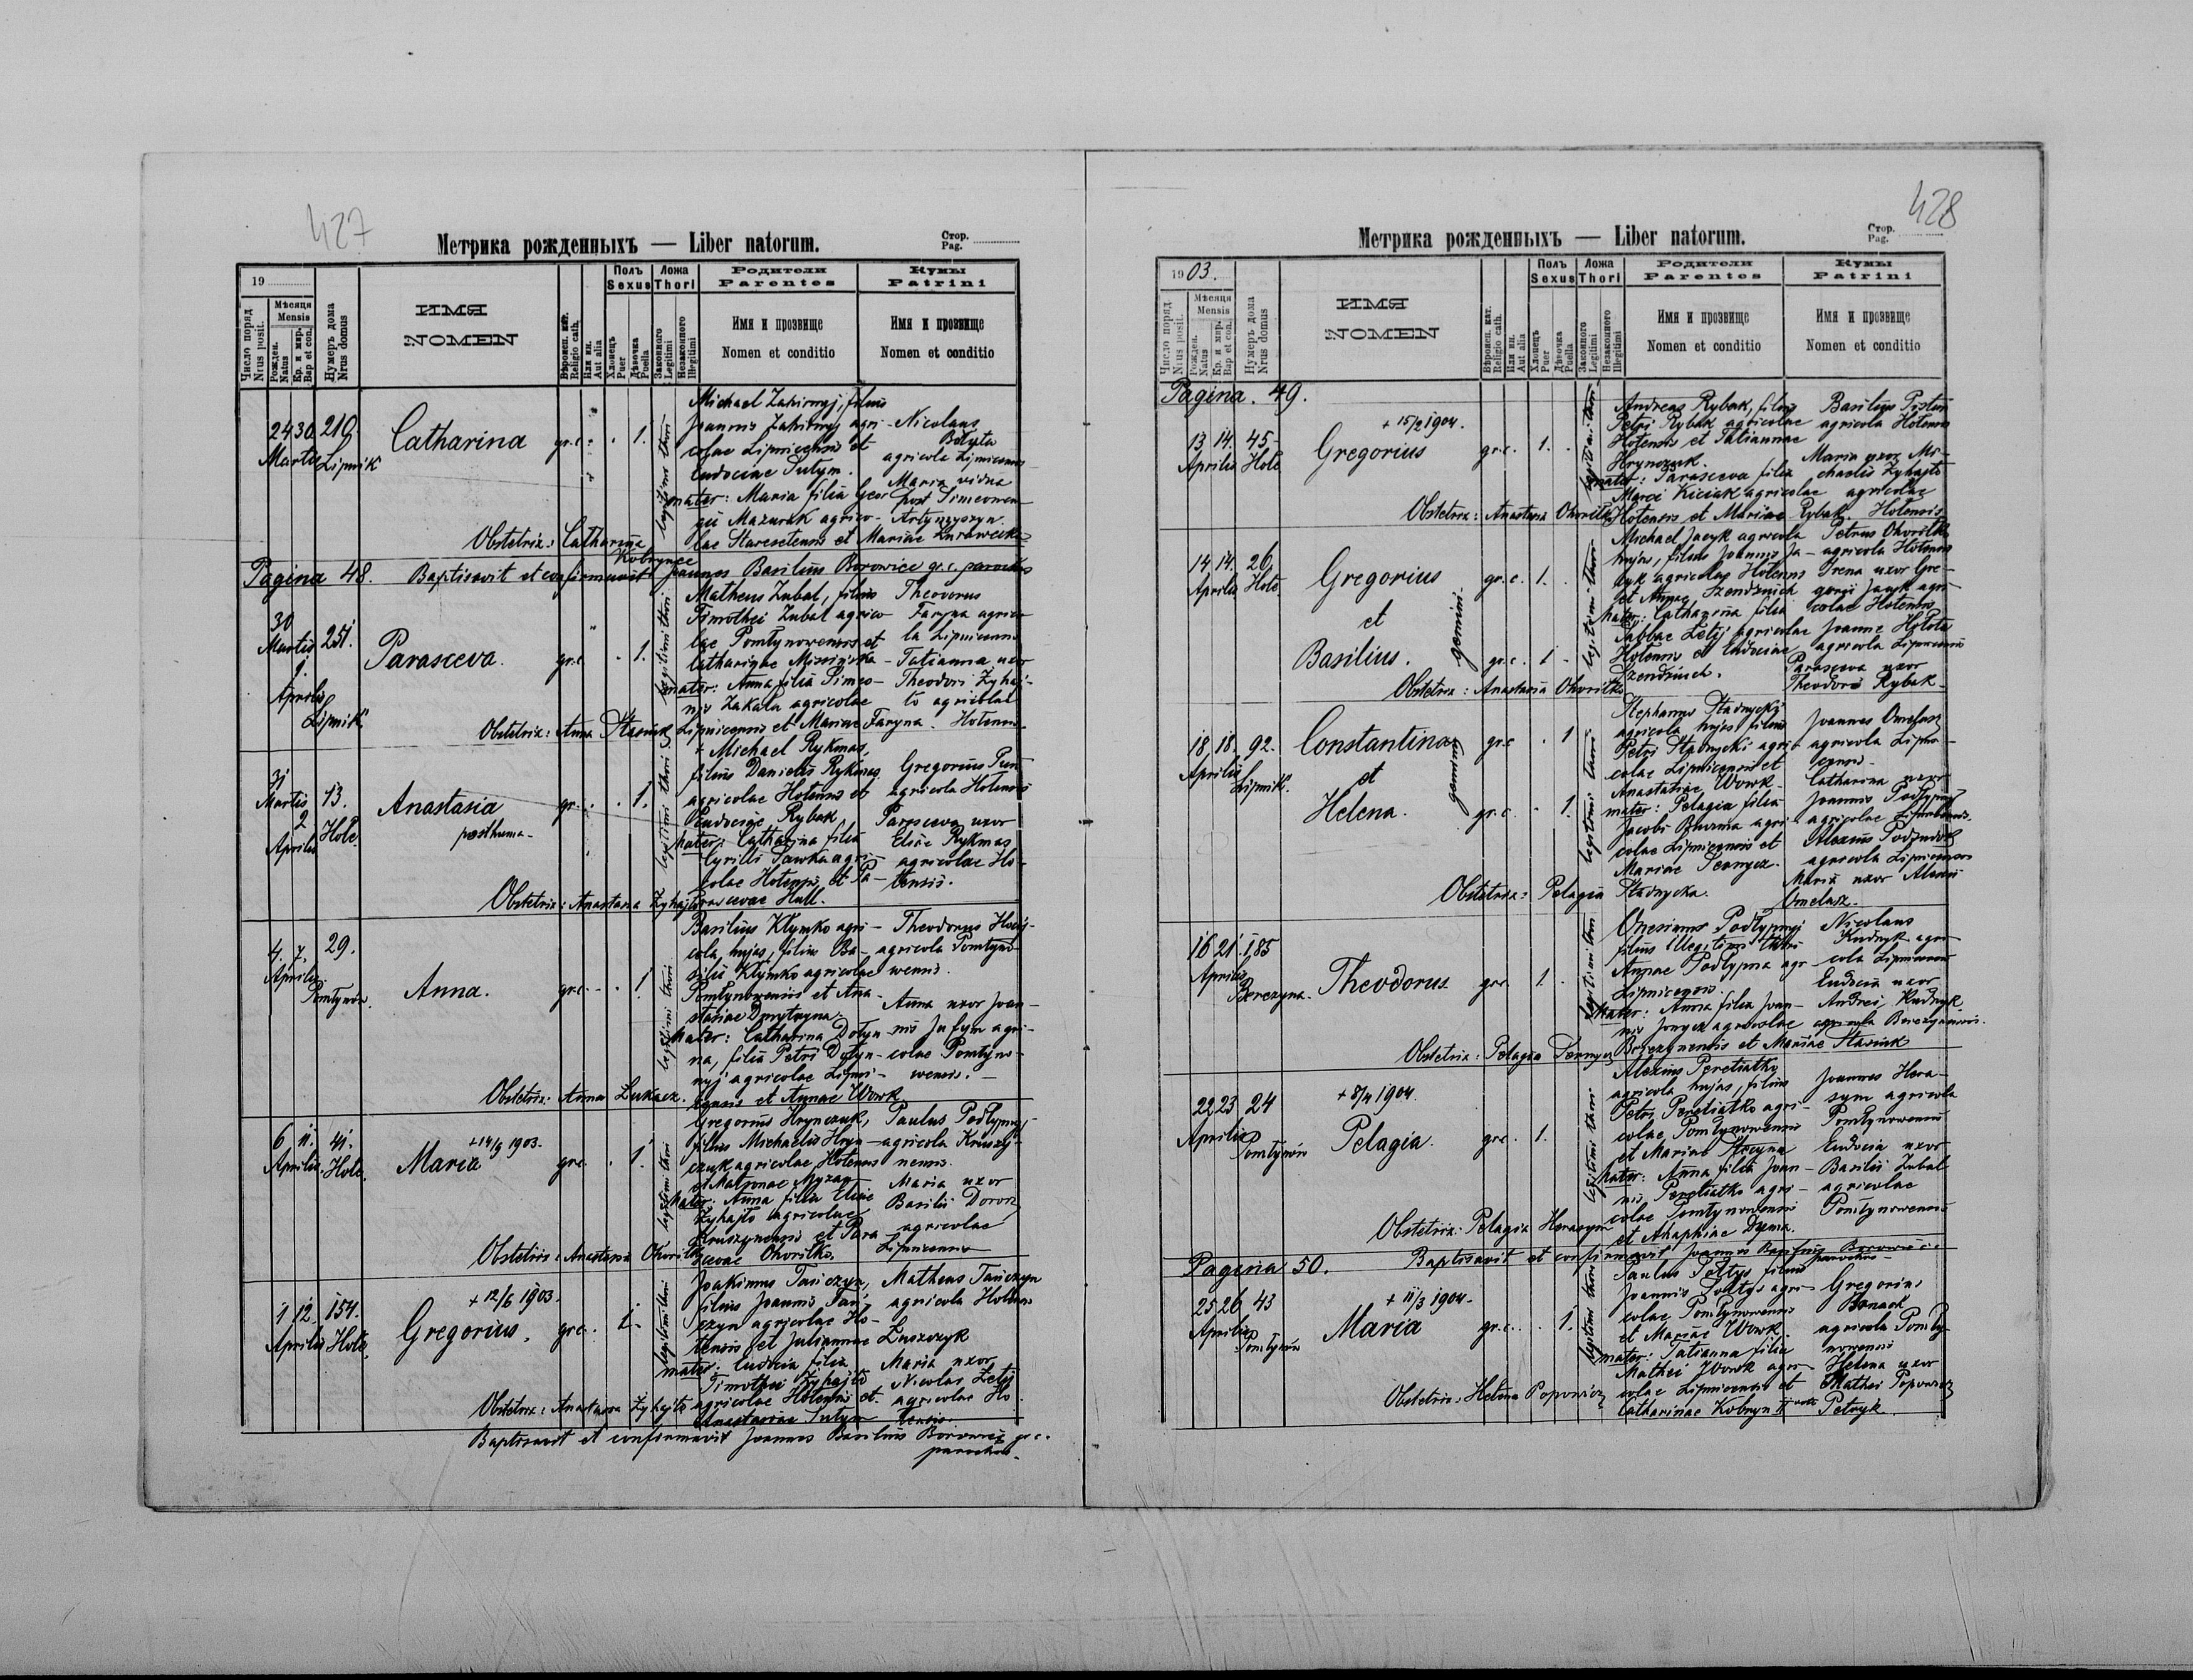 427
Метрика рожденныхъ — Liber natorum.
Стор.
Pag.
19
Число поряд
Nrus posit.
Мѣсяця
Mensis
Рожден.
Natus
Кр. и мѵр.
Bap et con.
Нумеръ дома
Nrus domus
ИМЯ
NOMEN
Вѣроисп. кат.
Religio cath.
Или ин.
Aut alia
Полъ
Sexus
Хлопецъ
Puer
Дѣвочка
Puella
Ложа
Thori
Законного
Legitimi
Незаконного
Illegitimi
Родители
Parentes
Имя и прозвище
Nomen et conditio
Кумы
Patrini
Имя и прозвище
Nomen et conditio
24 30 219
Martii Lipnik
Catharina
gr.c. 1.
legitimi thori
Michael Zakirnyj, filius
Joannis Zakirnyj agri-
colae Lipnicensis et
Eudociae Sutym.
mater: Maria filia Geor
gii Mazurak agrico-
lae Staresetensis et Mariae Zurawecka
Nicolaus
agricola Lipnicensis
Maria vidua
post Simeonem
Obstetrix: Catharina
Kobrynce
Pagina 48. Baptisavit et confirmavit Joannes Basilius Borowicz gr.c. parochus
30
Martii 251.
1
Aprilis
Lipnik
Parasceva.
gr.c. 1.
legitimi thori
Matheus Zubal, filius
Timothei Zubal agrico
lae Pomłynowensis et
Catharinae
mater: Anna filia Simeo-
nis Zakala agricolae
Lipnicensis et Mariae Faryna.
Theodorus
Faryna agrico
la Lipnicensis
Tatianna uxor
Theodori Zyhaj-
ło agricolae
Hotensis
Obstetrix: Anna Stasiuk
31
Martii 13.
2
Aprilis Hole
Anastasia
posthuma-
gr.c. 1.
legitimi thori
+ Michael Rykmas,
filius Danielis Rykmas
agricolae Hotensis et
Eudociae Rybak
Mater: Catharina filia
Cyrilli Sawka agri-
colae Hotensis et Pa-
rascevae Hall.
Gregorius
agricola Hotensis
Parasceva uxor
Eliae Rykmas
agricolae Ho-
tensis.
Obstetrix: Anastasia Zyhajło
4. 7. 29.
Aprilis
Pomłynów.
Anna.
gr.c. 1.
legitimi thori
Basilius Klymko agri-
cola hujas, filius Ba-
silii Klymko agricolae
Pomłynowensis et Ana-
stasiae Dmytryna.
Mater: Catharina Dotyn
na, filia Petri Dotyn-
nyj agricolae Lipni-
censis et Annae Wowk.
Theodorus
agricola Pomłyno-
wensis.
Anna uxor Joan-
nis agri-
colae Pomłyno-
wensis.
Obstetrix: Anna Lukacz.
6 11. 41.
Aprilis Hole.
+ 14/9 1903.
Maria
gr.c. 1.
legitimi thori
Gregorius Hrynczuk,
filius Michaelis Hryn-
czuk agricolae Hotensis
et Matronae
Mater: Anna filia Eliae
Zyhajło agricolae
Kruszynensis et Para
scevae Ohorilko.
Paulus Podłypnyj
agricola Kruszy-
nensis.
Maria uxor
Basilii Dorosz
agricolae
Lipnicensis
Obstetrix: Anastasia Ohorilko
1 12. 154.
Aprilis Hole.
+ 12/6 1903.
Gregorius.
gr.c. 1.
legitimi thori
Joakimus Tańczyn,
filius Joannis Tań-
czyn agricolae Ho-
tensis et Juliannae Łuszczyk
mater: Eudocia filia
Timothei Zyhajło
agricolae Hotensis et
Anastasiae Sutym
Matheus Tańczyn
agricola Hotensis
Maria uxor
Nicolai Letij
agricolae Ho
tensis.
Obstetrix: Anastasia Zyhajło
Baptisavit et confirmavit Joannes Basilius Borowicz gr.c.
parochus.
428
Метрика рожденныхъ — Liber natorum.
Стор.
Pag.
1903.
Число поряд
Nrus posit.
Мѣсяця
Mensis
Рожден.
Natus
Кр. и мѵр.
Bap et con.
Нумеръ дома
Nrus domus
ИМЯ
NOMEN
Вѣроисп. кат.
Religio cath.
Или ин.
Aut alia
Полъ
Sexus
Хлопецъ
Puer
Дѣвочка
Puella
Ложа
Thori
Законного
Legitimi
Незаконного
Illegitimi
Родители
Parentes
Имя и прозвище
Nomen et conditio
Кумы
Patrini
Имя и прозвище
Nomen et conditio
Pagina. 49.
13 14. 45-
Aprilis Hole
+ 15/2 1904.
Gregorius
gr.c. 1.
legitimi thori
Andreas Rybak, filius
Petri Rybak agricolae
Hotensis et Tatiannae
Hrynczuk.
mater: Parasceva filia
Marci Kiciak agricolae
Hotensis et Mariae Rybak.
Basilius Pistun
agricola Hotensis
Maria uxor Mi-
chaelis Zyhajło
agricolae
Hotensis
Obstetrix: Anastasia Ohorilko
14 14. 26
Aprilis Hole.
Gregorius
et
Basilius.
gemini.
gr.c. 1.
gr.c. 1.
legitimi thori
Michael Jacyk agricola
hujas, filius Joannis Ja-
cyk agricolae Hotensis
et Annae Szendziuch
Mater: Catharina filia
Sabbae Letij agricolae
Hotensis et Eudociae
Szendziuch.
Petrus Ohorilko
agricola Hotensis
Irena uxor Gre-
gorii Jacyk agri
colae Hotensis
Joannes Hołota
agricola Lipnicensis
Parasceva uxor
Theodori Rybak
Obstetrix: Anastasia Ohorilko
18 18. 92.
Aprilis Lipnik.
Constantina
et
Helena.
geminae
gr.c. 1
gr.c. 1.
legitimi thori
Stephanus Stadnycki
agricola hujas filius
Petri Stadnycki agri-
colae Lipnicensis et
Anastasiae Wowk.
mater: Pelagia filia
Jacobi Burma agri-
colae Lipnicensis et
Mariae Sernycz.
Joannes Omelasz
agricola Lipni-
censis.
Catharina uxor
Joannis Podłypnyj
agricolae Lipnicensis.
Alexius
agricola Lipnicensis
Maria uxor Alexii
Omelasz.
Obstetrix: Pelagia Stadnycka.
16 21. 185
Aprilis Borczyna.
Theodorus
gr.c. 1.
legitimi thori
Onesimus Podłypnyj
filius illegitimi thori
Annae Podłypna agr
Lipnicensis.
Mater: Anna filia Joan-
nis agricolae
et Mariae Stasiuk
Nicolaus
Kudryk agri
cola Lipnicensis
Eudocia uxor
Andrei Kudryk
Obstetrix: Pelagia Sernycz
22 23 24
Aprilis Pomłynów
+ 8/4 1904.
Pelagia.
gr.c. 1.
legitimi thori
Alexius Peretiatko
agricola hujas, filius
Petri Peretiatko agri-
colae Pomłynowensis
et Mariae
Mater: Anna filia Joan-
nis Peretiatko agri-
colae Pomłynowensis
et Ahaphiae Dyma.
Joannes Hera-
sym agricola
Pomłynowensis
Eudocia uxor
Basilii Zubal
agricolae
Pomłynowensis
Obstetrix: Pelagia Herasym
Pagina 50. Baptisavit et confirmavit Joannes Basilius Borowicz
parochus
25 26 43
Aprilis Pomłynów
+ 11/3 1904.
Maria
gr.c. 1.
legitimi thori
Paulus Sołtys filius
Joannis Sołtys agri-
colae Pomłynowensis
et Mariae Wowk.
mater: Tatianna filia
Mathei Wowk agri-
colae Lipnicensis et
Catharinae Kobryn II voto Petryk.
Gregorius
Banach
agricola Pomły-
nowensis
Helena uxor
Mathei Popowicz
Obstetrix: Helena Popowicz